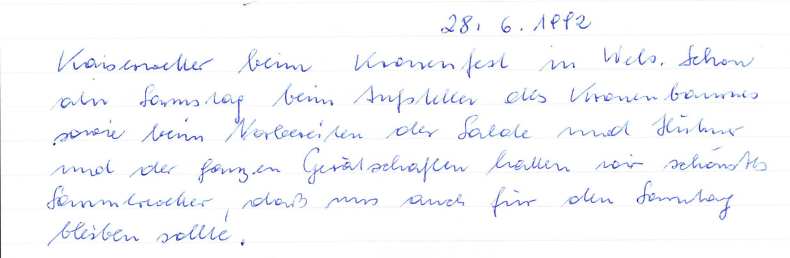 28. 6. 1992
Kaiserwetter beim Kronenfest in Wels. Schon
am Samstag beim Aufstellen des Kronenbaumes
sowie beim Vorbereiten der Salate und Hühner
und der ganzen Gerätschaften hatten wir schönstes
Sommerwetter, daß uns auch für den Sonntag
bleiben sollte.